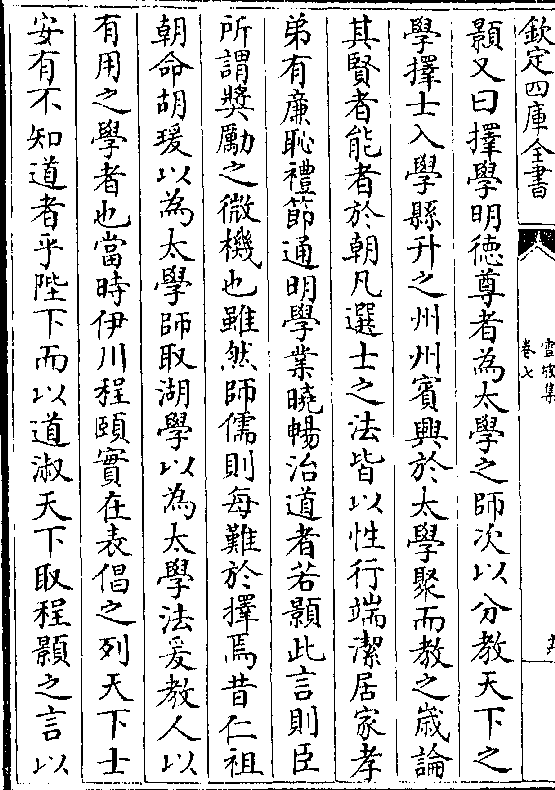 欽定四庫全書
雪坡集
卷七
顥又曰擇學明徳尊者為太學之師次以分教天下之
學擇士入學縣升之州州賓興於太學聚而教之歲論
其賢者能者於朝凡選士之法皆以性行端潔居家孝
弟有亷恥禮節通明學業曉暢治道者若顥此言則臣
所謂奬勵之微機也雖然師儒則每難於擇焉昔仁祖
朝命胡瑗以為太學師取湖學以為太學法爰教人以
有用之學者也當時伊川程頤實在表倡之列天下士
安有不知道者乎陛下而以道淑天下取程顥之言以